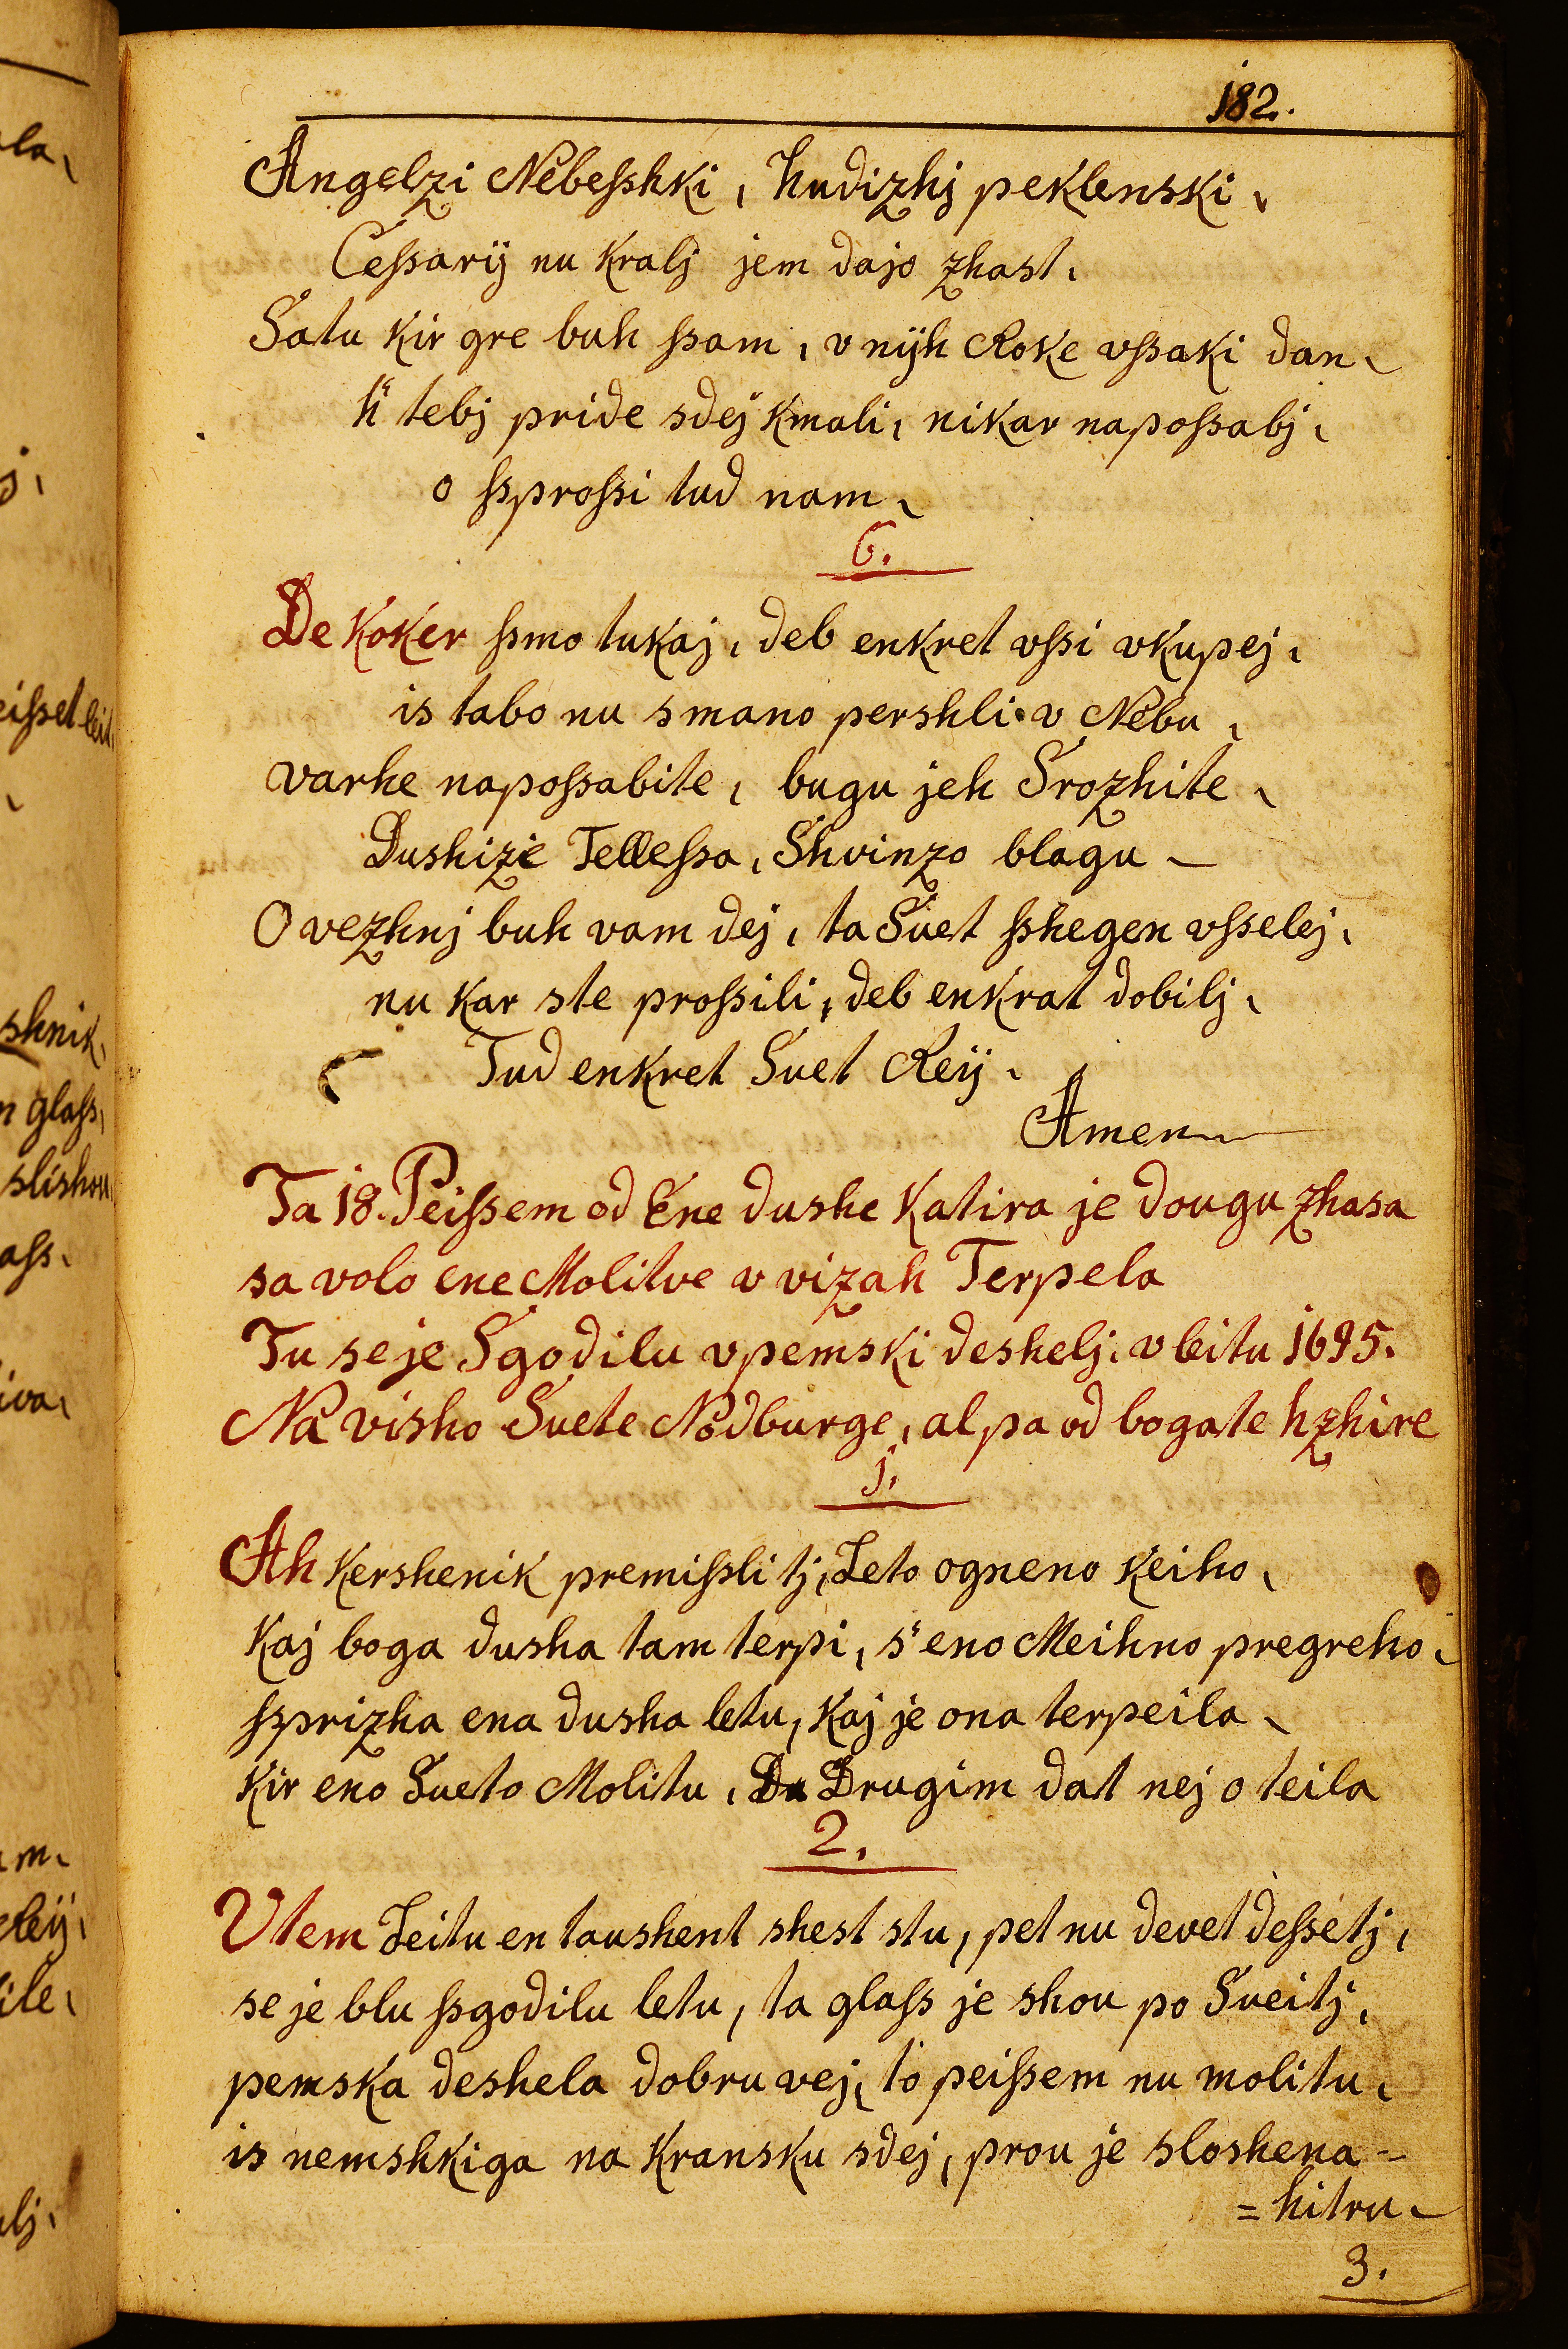 182.
Angelzi Nebeſshki, hudizhj peklenski,
Ceſsarij nu Kralj jem dajo zhast,
Satu Kir gre buh ſsam, v nijh Roke vſsaki dan,
h' tebj pride sdej Kmali, nikar napoſsabj,
o ſsproſsi tud nam,
6.
De Koker ſsmo tukaj, deb enkret vſsi vkupej,
is tabo nu smano pershli v Nebu,
varhe napoſsabite, bugu jeh Srozhite,
Dushize Telleſsa, Shvinzo blagu -
O vezhnj buh vam dej, ta Suet ſshegen vſselej,
nu Kar ste proſsili, deb enkrat dobilj,
Tud enkret Suet Reij,
Amen
Ta 18. Peiſsem od Ene dushe Katira je dougu zhasa
sa volo ene Molitve v vizah Terpela
Tu se je Sgodilu vpemski deshelj, v leitu 1695.
Na visho Suete Nodburge, al pa od bogate hzhire
1.
Ah Kershenik premiſsli tj, Leto ogneno Keiho,
Kaj boga dusha tam terpi, s' eno Meihno pregreho,
ſsprizha ena dusha letu, Kaj je ona terpeila,
Kir eno Sueto Molitu, Drugim dat nej o teila
2.
Vtem Leitu en taushent shest stu, pet nu devet deſsetj,
se je blu ſsgodilu letu, ta glaſs je shou po Sueitj,
pemska deshela dobru vej, to peiſsem nu molitu,
is nemshkiga na Kransku sdej, prou je sloshena -
= hitru,
3.
ala,
j,
eiſset leit,
shnik,
n glaſs,
slishou,
aſs,
iva,
m,
Reij,
ite,
lj,